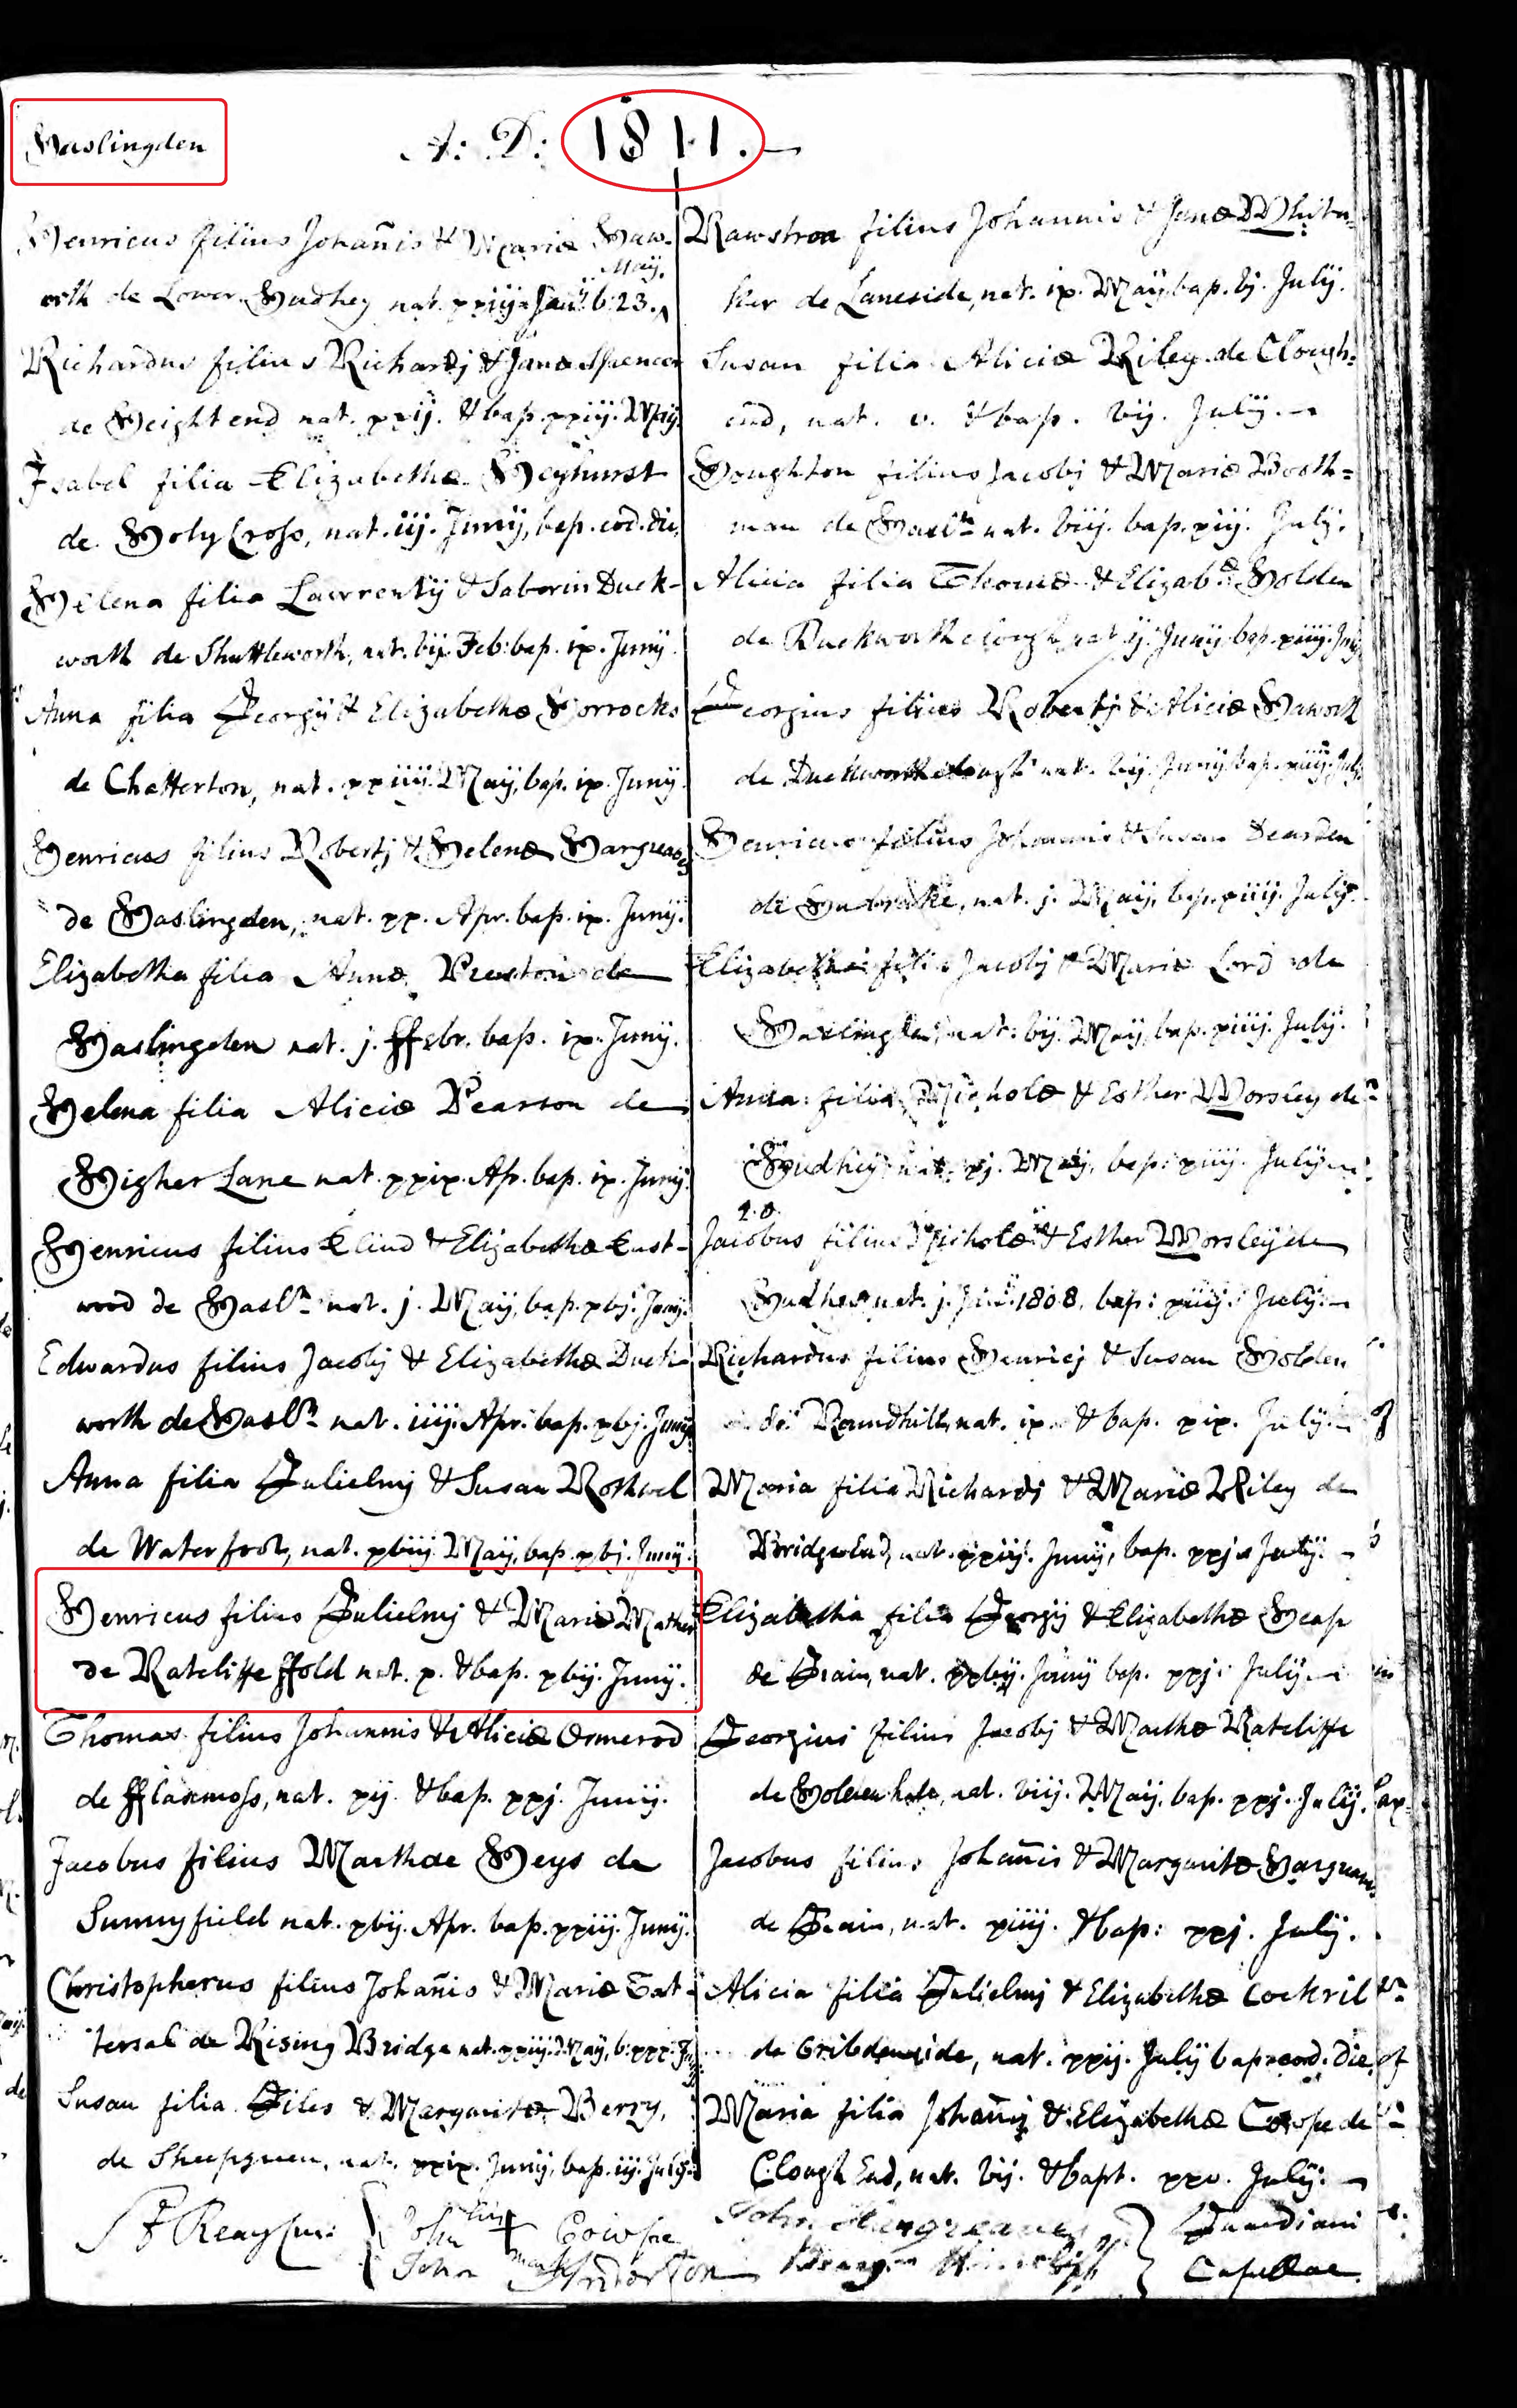 Haslingden
A: D: 1811.
Henricus filius Johañis & Mariæ Haw-
May.
orth de Lower Hudhey nat. xxiij. Jan: b: 23.
Richardus filius Richardj & Janæ Spencer
de Height end nat. xxij. & bap. xxiij. May.
Isabel filia Elizabethæ Heyhurst
de Holy Cross, nat. iij. Junij, bap. eod. die.
Helena filia Lawrentij & Duck-
worth de Shuttleworth, nat. vij. Feb: bap. ix. Junij.
Anna filia Georgij & Elizabethæ Horrocks
de Chatterton, nat. xxiiij. Maij, bap. ix. Junij.
Henricus filius Robertj & Helenæ Hargreaves
de Haslingden, nat. xx. Apr. bap. ix. Junij.
Elizabetha filia Annæ Preston de
Haslingden nat. j. ffebr. bap. ix. Junij.
Helena filia Aliciæ Pearson de
Higher Lane nat. xxix. Ap. bap. ix. Junij.
Henricus filius & Elizabethæ East-
wood de Hasl.n nat. j. Maij, bap. xvj. Junij.
Edwardus filius Jacobj & Elizabethæ Duck-
worth de Hasl.n nat. iiij. Apr. bap. xvj. Junij.
Anna filia Gulielmj & Susan Rothwel
de Waterfoot, nat. xviij. Maij, bap. xvj. Junij.
Henricus filius Gulielmj & Mariæ Mather
de Ratcliffe ffold nat. x. & bap. xvij. Junij.
Thomas filius Johannis & Aliciæ Ormerod
de fflaxmoss, nat. xij. & bap. xxj. Junij.
Jacobus filius Marthae Heys de
Sunnyfield nat. xvij. Apr. bap. xxiij. Junij.
Christopherus filius Johañis & Mariæ Tat-
tersal de Rising Bridge nat. xxiij. Maij, b: xxx:
Susan filia Giles & Margaritæ Berry,
de Sheepgreen, nat. xxix. Junij, bap. iij. Julij.
Rawstron filius Johannis & Janæ Whita-
ker de Laneside, nat. ix. Maij, bap. vj. Julij.
Susan filia Aliciæ Riley de Clough-
end, nat. v. & bap. vij. Julij.
Houghton filius Jacobj & Mariæ Booth-
man de Hasl.n nat. viij. bap. xiij. Julij.
Alicia filia Thomæ & Elizab.æ Holden
de Duckworth clough nat. ij. Junij, bap. xiiij. July
Georgius filius Robertj & Aliciæ Haworth
de Duckworth clough nat. vij. Junij bap. xiiij. July
Henricus filius Johannis & Susan Dearden
de nat. j. Maij, bap. xiiij. Julij.
Elizabetha filia Jacobj & Mariæ Lord de
Haslingden, nat: vij. Maij, bap. xiiij. Julij.
Anna filia Nicholæ & Esther Worsley de
Hudhey nat. xj. Maij, bap: xiiij. Julij
Jacobus filius Nicholæ & Esther Worsley de
Hudhey nat. j. 1808, bap: xiiij. Julij.
Richardus filius Henricj & Susan Holden
de Roundhill, nat. ix. & bap. xix. Julij.
Maria filia Richardj & Mariæ Riley de
Bridge End, nat. xxiij. Junij, bap. xxj. Julij.
Elizabetha filia Georgij & Elizabethæ Heap
de Grain, nat. xxvij. Junij bap. xxj. Julij.
Georgius filius Jacobj & Marthæ Ratcliffe
de Holden hole, nat. viij. Maij, bap. xxj. Julij.
Jacobus filius Johañis & Margaritæ Hargreaves
de Grain, nat. xiiij. & bap: xxj. Julij.
Alicia filia Gulielmj & Elizabethæ Cockril
de Cribdenside, nat. xxij. Julij bap. eod. Die
Maria filia Johañj & Elizabethæ Cowpe de
Clough End, nat. vij. & bapt. xxv. Julij.
John his + mark Cowpe
John Anderton
John Hargreaves
Guardiani
Capellae.